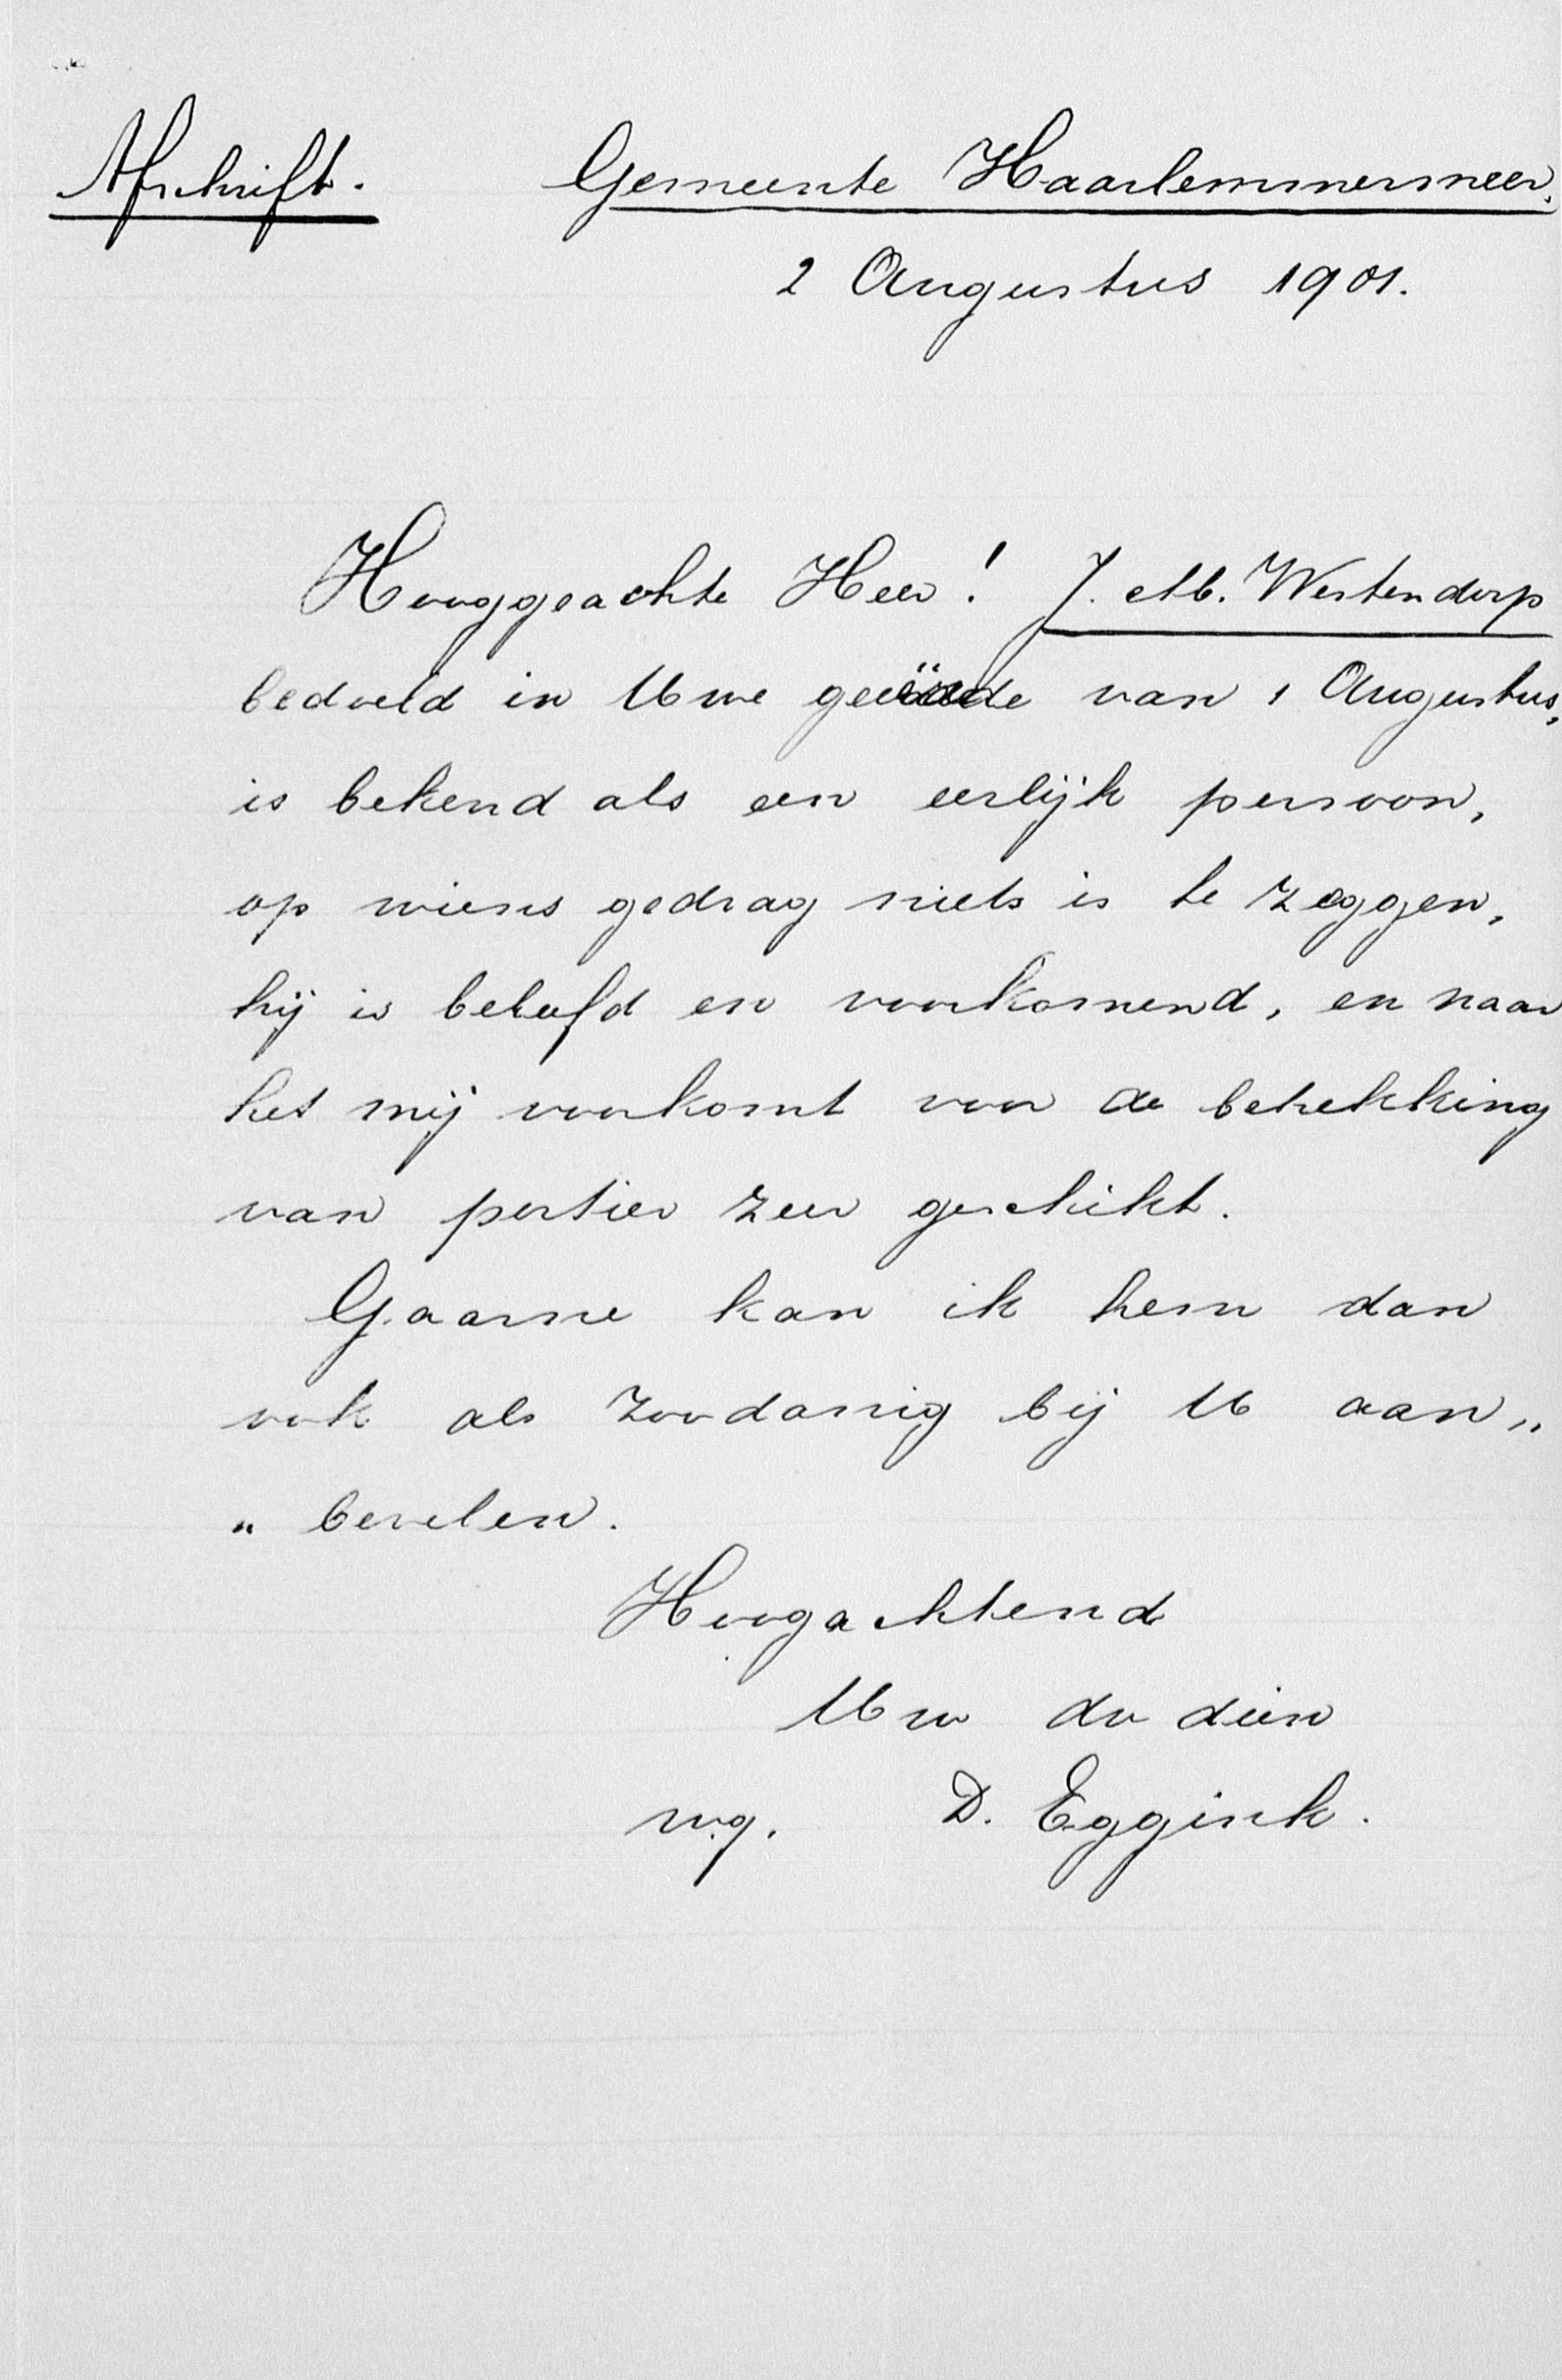 Afschrift. Gemeente Haarlemmermeer.
2 Augustus 1901.
Hooggeachte Heer! J. M. Westendorp
bedoeld in Uwe geëerde van 1 Augustus,
is bekend als een eerlijk persoon,
op wiens gedrag niets is te zeggen,
hij is beleefd en voorkomend, en naar
het mij voorkomt voor de betrekking
van portier zeer geschikt.
Gaarne kan ik hem dan
ook als zoodanig bij U aan„
„ bevelen.
Hoogachtend
Uw dv dien
w.g. D. Eggink.